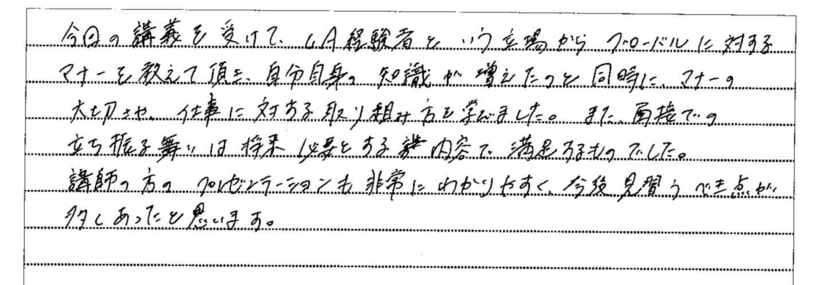 今回の講義を受けて、CA経験者という立場からグローバルに対する
マナーを教えて頂き、自分自身の知識が増えたのと同時に、マナーの
大切さや、仕事に対する取り組み方を学びました。また、面接での
立ち振る舞いは将来必要とする講内容で満足するものでした。
講師の方のプレゼンテーションも非常にわかりやすく、今後見習うべき点が
多くあったと思います。